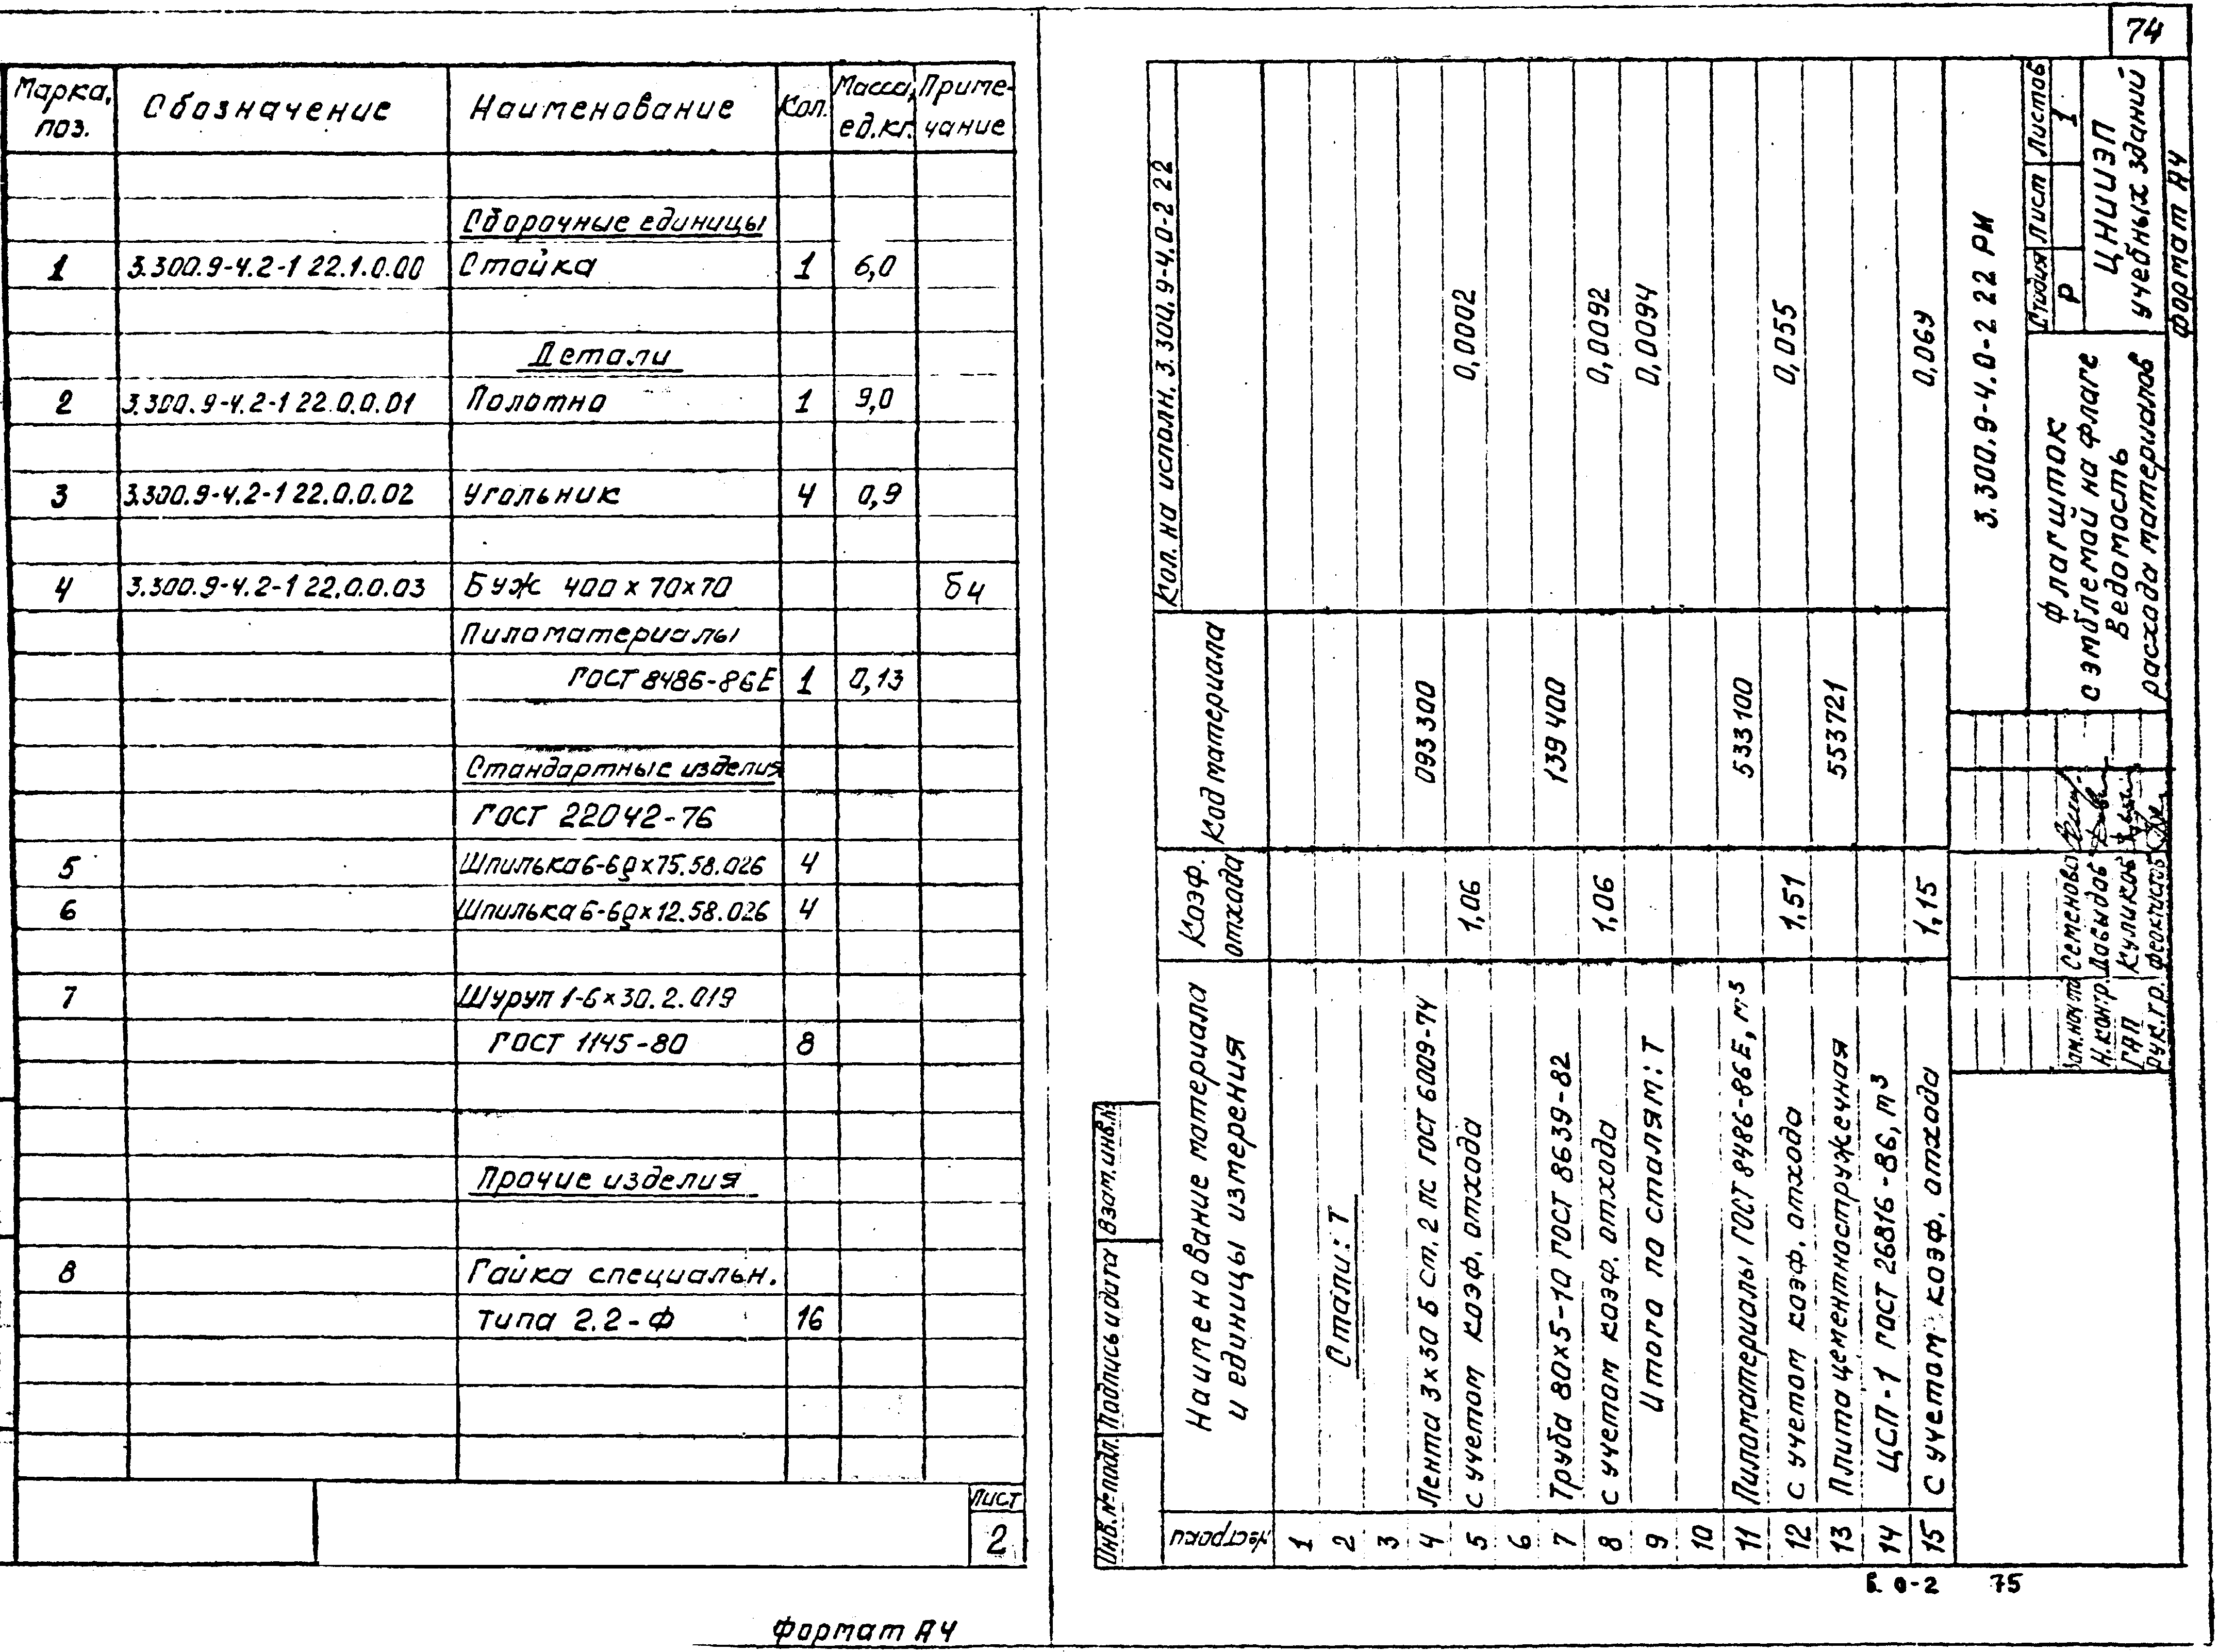 74
Марка, поз. Обозначение Наименование Кол. Масса, ед.кг. Приме-чание
Сборочные единицы
1 3.300.9-4.2-1 22.1.0.00 Стойка 1 6,0
Детали
2 3.300.9-4.2-1 22.0.0.01 Полотно 1 9,0
3 3.300.9-4.2-1 22.0.0.02 Угольник 4 0,9
4 3.300.9-4.2-1 22.0.0.03 Буж 400×70×70 бч
Пиломатериалы
ГОСТ 8486-86Е 1 0,13
Стандартные изделия
ГОСТ 22042-76
5 Шпилька 6-6g×75.58.026 4
6 Шпилька 6-6g×12.58.026 4
7 Шуруп 1-6×30.2.019
ГОСТ 1145-80 8
Прочие изделия
8 Гайка специальн.
типа 2.2-Ф 16
Лист
2
Формат А4
№ строки Наименование материала и единицы измерения Коэф. отхода Код материала Кол. на исполн. 3.300.9-4.0-2 22
1
2 Стали: Т
3
4 Лента 3×30 Б ст. 2 ПС ГОСТ 6009-74 093300
5 с учетом коэф. отхода 1,06 0,0002
6
7 Труба 80×5-10 ГОСТ 8639-82 139400
8 с учетом коэф. отхода 1,06 0,0092
9 Итого по сталям: Т 0,0094
10
11 Пиломатериалы ГОСТ 8486-86Е, м³ 533100
12 с учетом коэф. отхода 1,51 0,055
13 Плита цементностружечная 553721
14 ЦСП-1 ГОСТ 26816-86, м³
15 с учетом коэф. отхода 1,15 0,069
Инв. № подл. Подпись и дата Взам. инв. №
3.300.9-4.0-2 22 РИ
Зам.нач.то Семенова
Н.контр. Давыдов
ГАП Куликов
Рук.гр. Феоктистов
Флагшток
с эмблемой на флаге
Ведомость
расхода материалов
Стадия Лист Листов
Р 1
ЦНИИЭП
учебных зданий
Формат А4
0-2 75